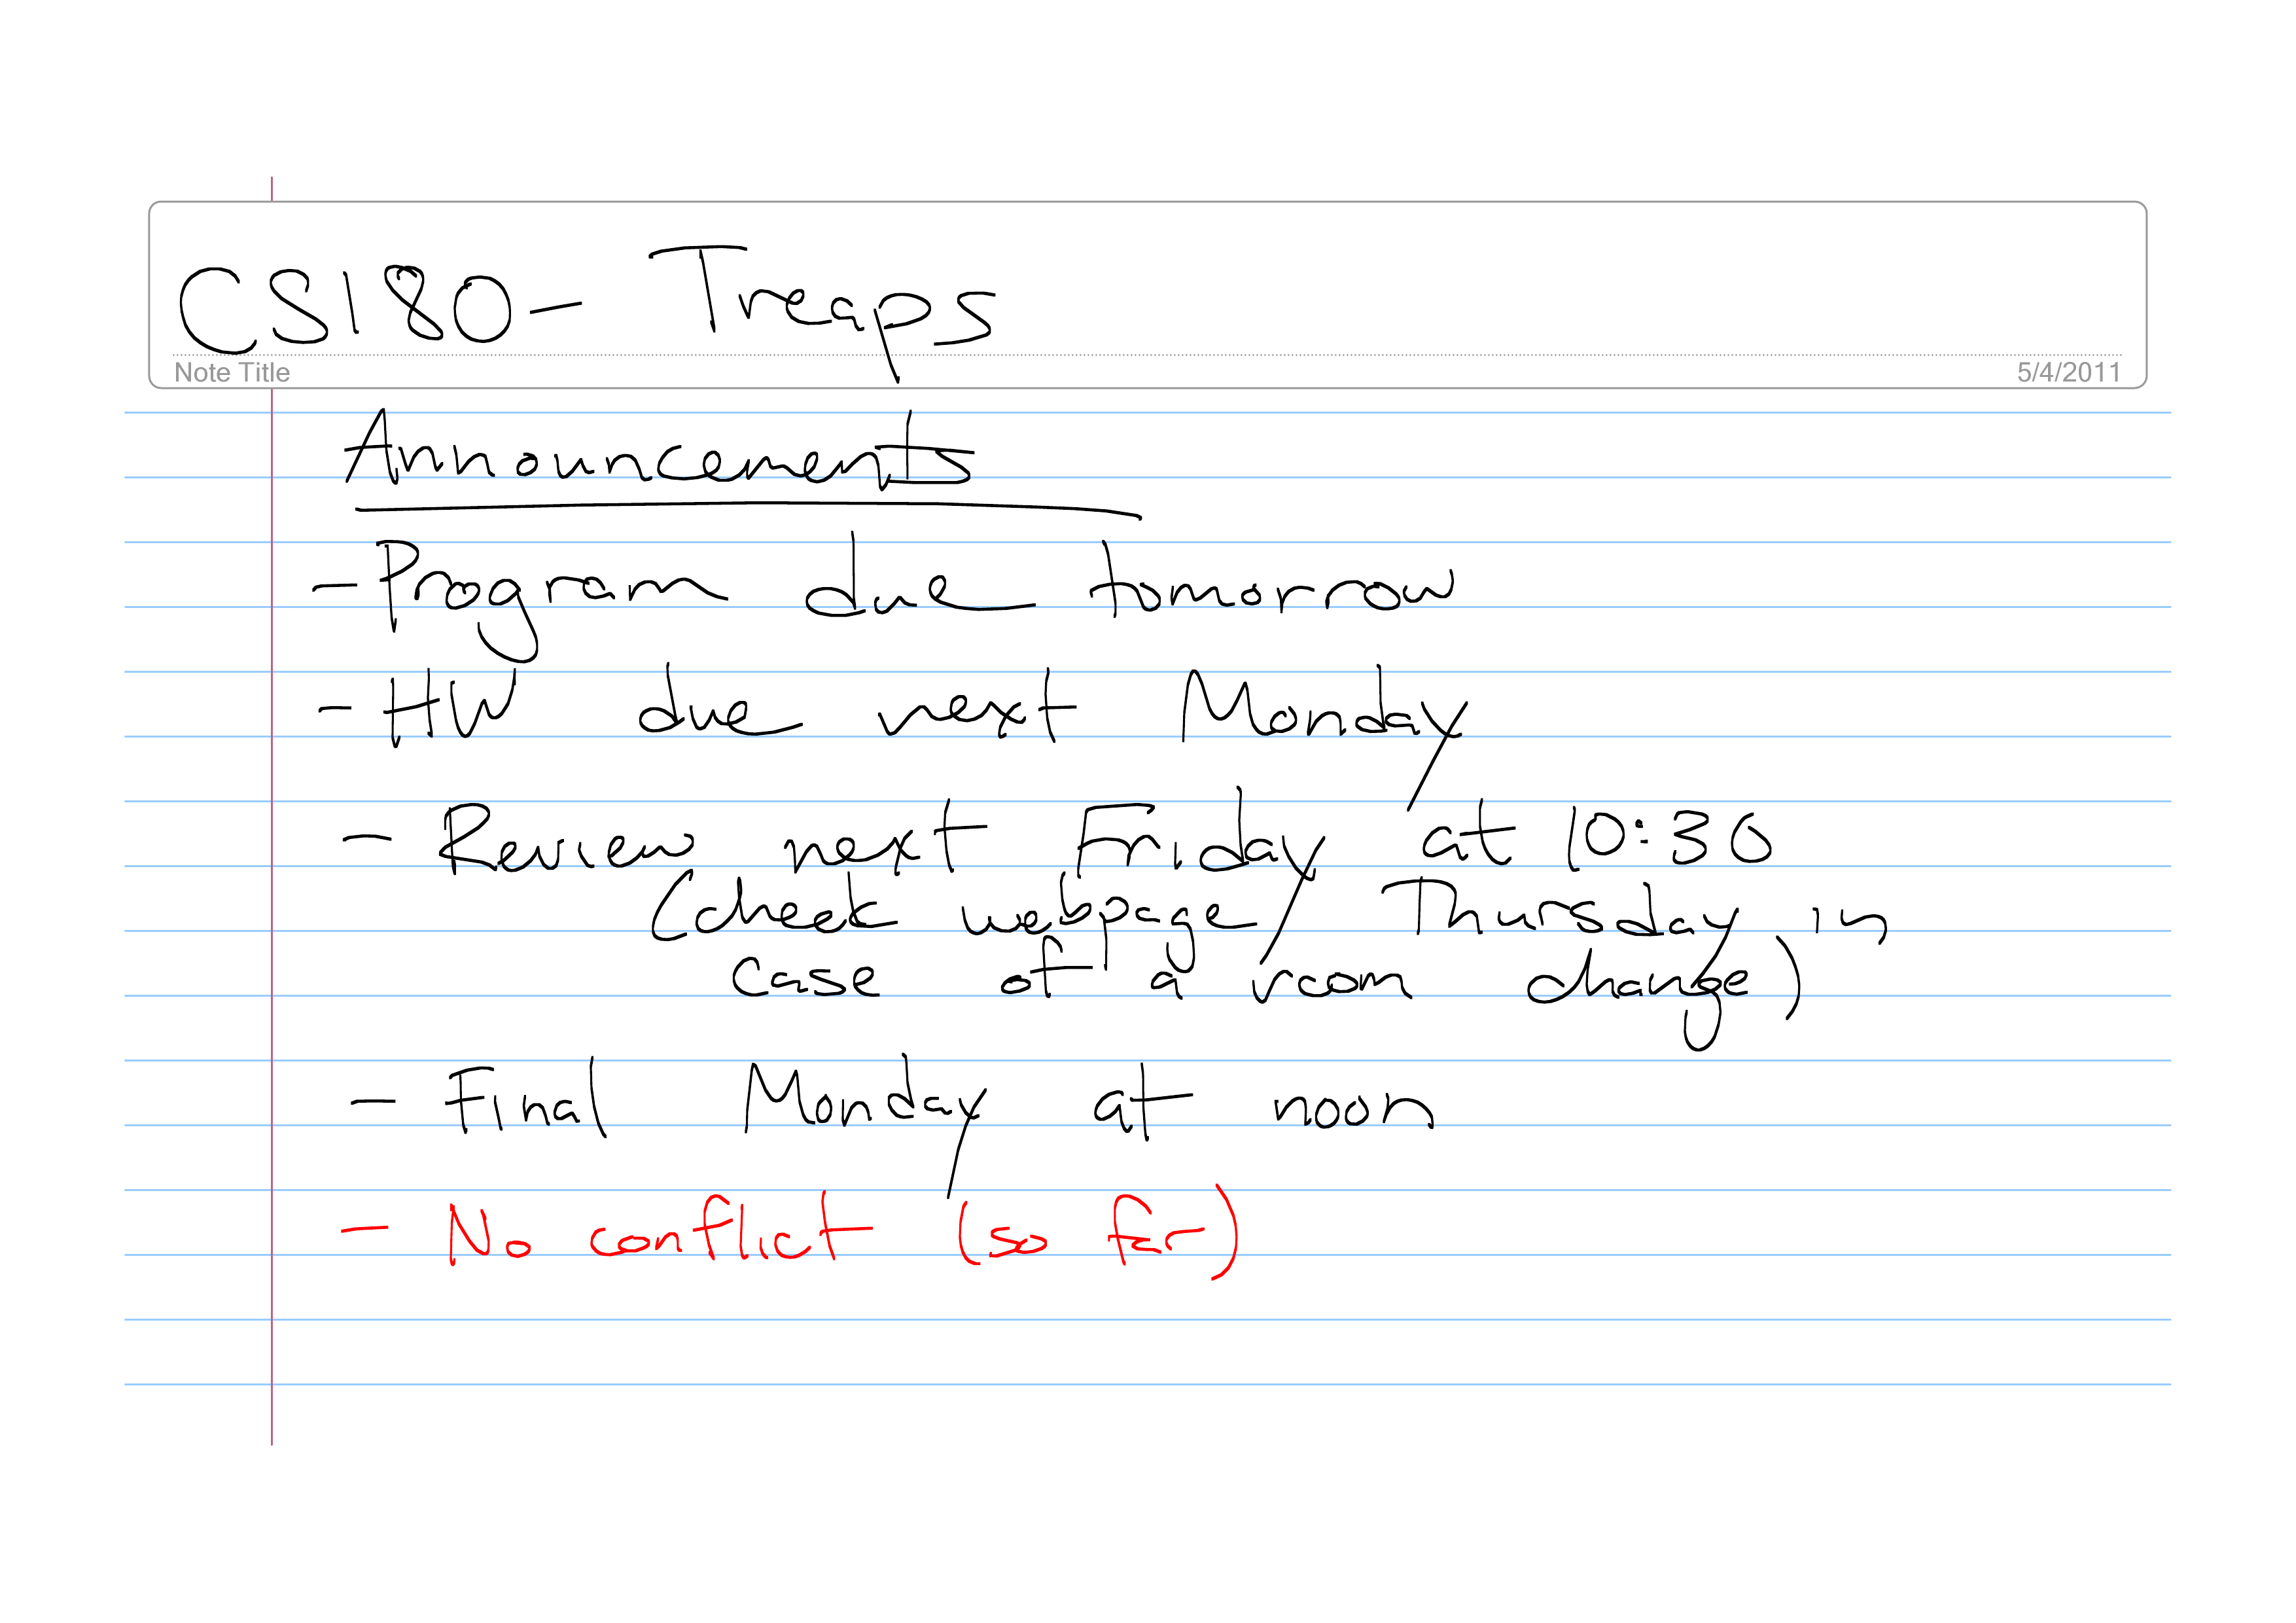 CS180 - Treaps
Note Title 5/4/2011
Announcements
- Program due tomorrow
- HW due next Monday
- Review next Friday at 10:30
(check webpage Thursday in
case of a room change)
- Final Monday at noon
- No conflict (so far)